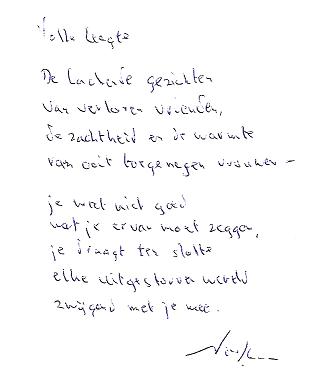 Volle leegte
De lachende gezichten
van verloren vrienden,
de zachtheid en de warmte
van ooit toegenegen vrouwen –
je weet niet goed
wat je ervan moet zeggen,
je draagt ten slotte
elke uitgestorven wereld
zwijgend met je mee.